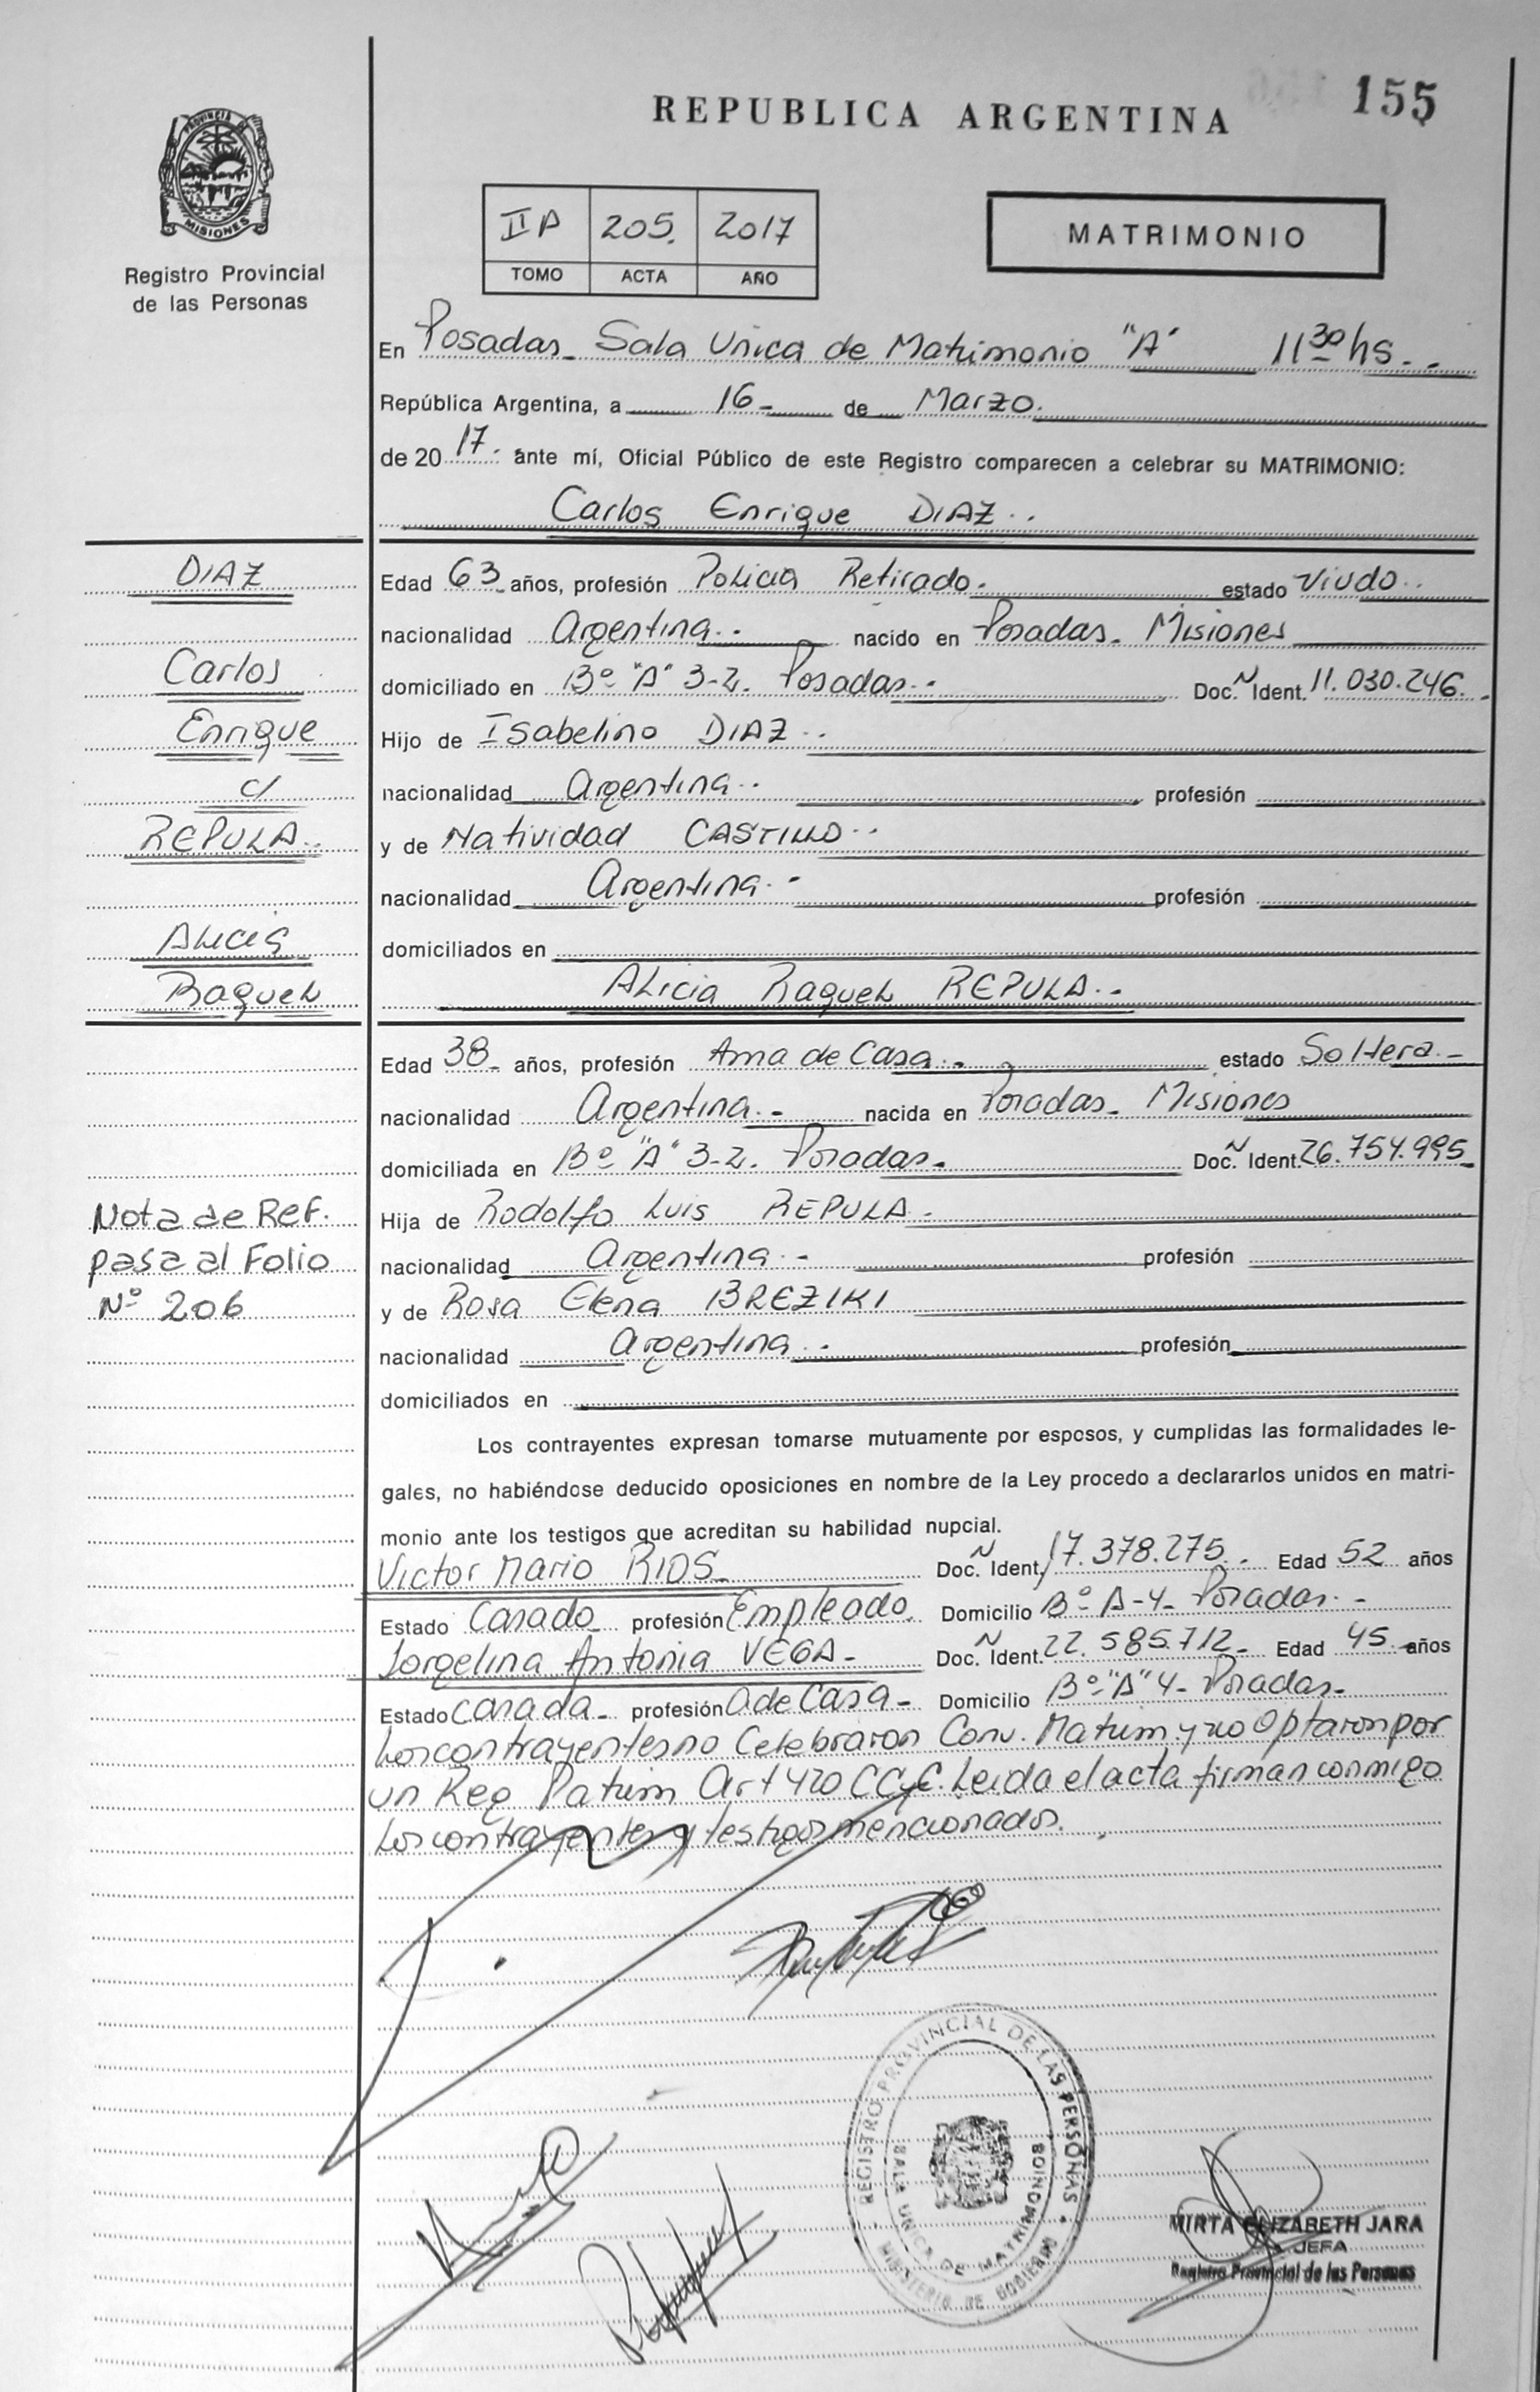 155
REPUBLICA ARGENTINA
PROVINCIA DE
MISIONES
Registro Provincial
de las Personas
IIA 205. 2017
TOMO ACTA AÑO
MATRIMONIO
En Posadas_ Sala Unica de Matrimonio "A" 11 30 hs._
República Argentina, a 16_ de Marzo.
de 20 17. ante mí, Oficial Público de este Registro comparecen a celebrar su MATRIMONIO:
Carlos Enrique DIAZ..
DIAZ
Carlos
Enrique
c/
REPULA..
Alicia
Raquel
Edad 63_ años, profesión Policia Retirado. estado Viudo..
nacionalidad Argentina.. nacido en Posadas_ Misiones
domiciliado en Bº "A" 3-2. Posadas.. Doc. N Ident. 11.030.246.
Hijo de Isabelino DIAZ..
nacionalidad Argentina.. profesión
y de Natividad CASTILLO..
nacionalidad Argentina.- profesión
domiciliados en
Alicia Raquel REPULA..
Edad 38_ años, profesión Ama de Casa._ estado Soltera._
nacionalidad Argentina._ nacida en Posadas_ Misiones
domiciliada en Bº "A" 3-2. Posadas._ Doc. N Ident. 26.754.995_
Hija de Rodolfo Luis REPULA._
nacionalidad Argentina._ profesión
y de Rosa Elena BREZIKI
nacionalidad Argentina.. profesión
domiciliados en
Nota de Ref.
pasa al Folio
Nº 206
Los contrayentes expresan tomarse mutuamente por esposos, y cumplidas las formalidades le-
gales, no habiéndose deducido oposiciones en nombre de la Ley procedo a declararlos unidos en matri-
monio ante los testigos que acreditan su habilidad nupcial.
Victor Mario RIOS_ Doc. N Ident. 17.378.275._ Edad 52 años
Estado Casado profesión Empleado Domicilio Bº A-4_ Posadas._
Jorgelina Antonia VEGA_ Doc. N Ident. 22.585.712_ Edad 45_ años
Estado Casada_ profesión A de Casa_ Domicilio Bº "A" 4_ Posadas_
Los contrayentes no Celebraron Conv. Matrim y no Optaron por
un Reg Patrim Art 420 CCyC. Leida el acta firman conmigo
Los contrayentes y testigos mencionados.
REGISTRO PROVINCIAL DE LAS PERSONAS
SALA UNICA DE MATRIMONIOS
MINISTERIO DE GOBIERNO
MIRTA ELIZABETH JARA
JEFA
Registro Provincial de las Personas